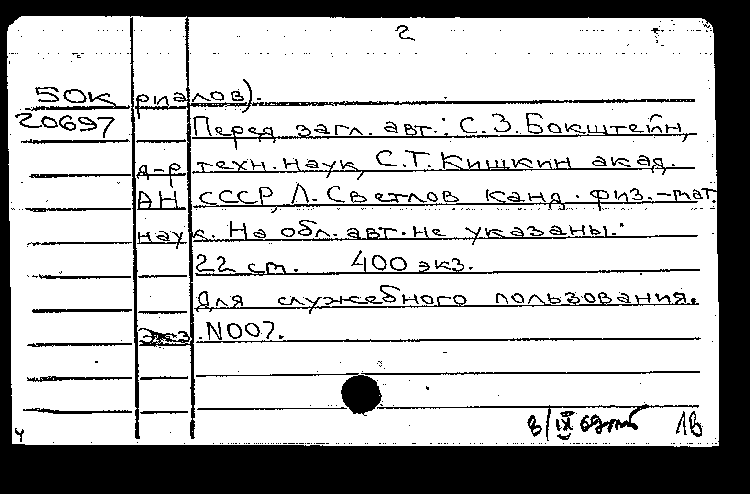 2
50К риалов).
20697 Перед загл. авт.: С.З.Бокштейн,
д-р техн.наук, С.Т.Кишкин акад.
АН СССР, Л.Светлов канд. физ.-мат.
наук. На обл. авт. не указаны.
22 cm. 400 экз.
Для служебного пользования.
Экз. N007.
8/IX 69 1в
ч